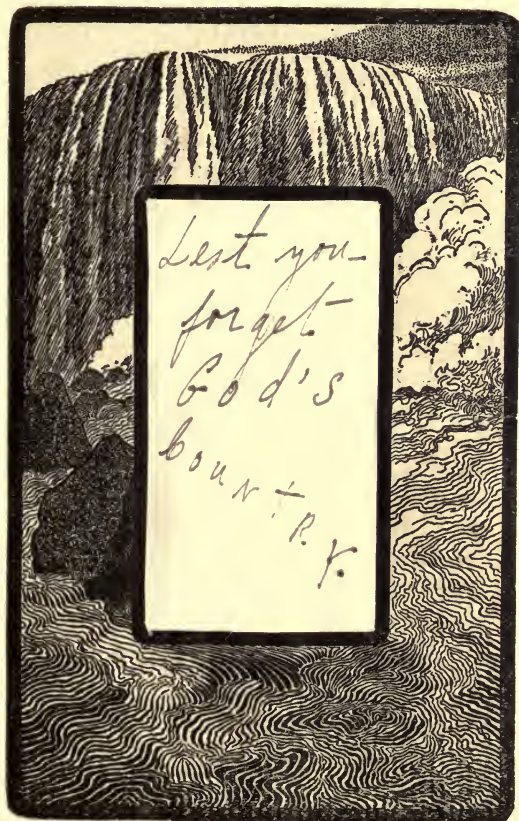 Lest you
forget
God's
Country.